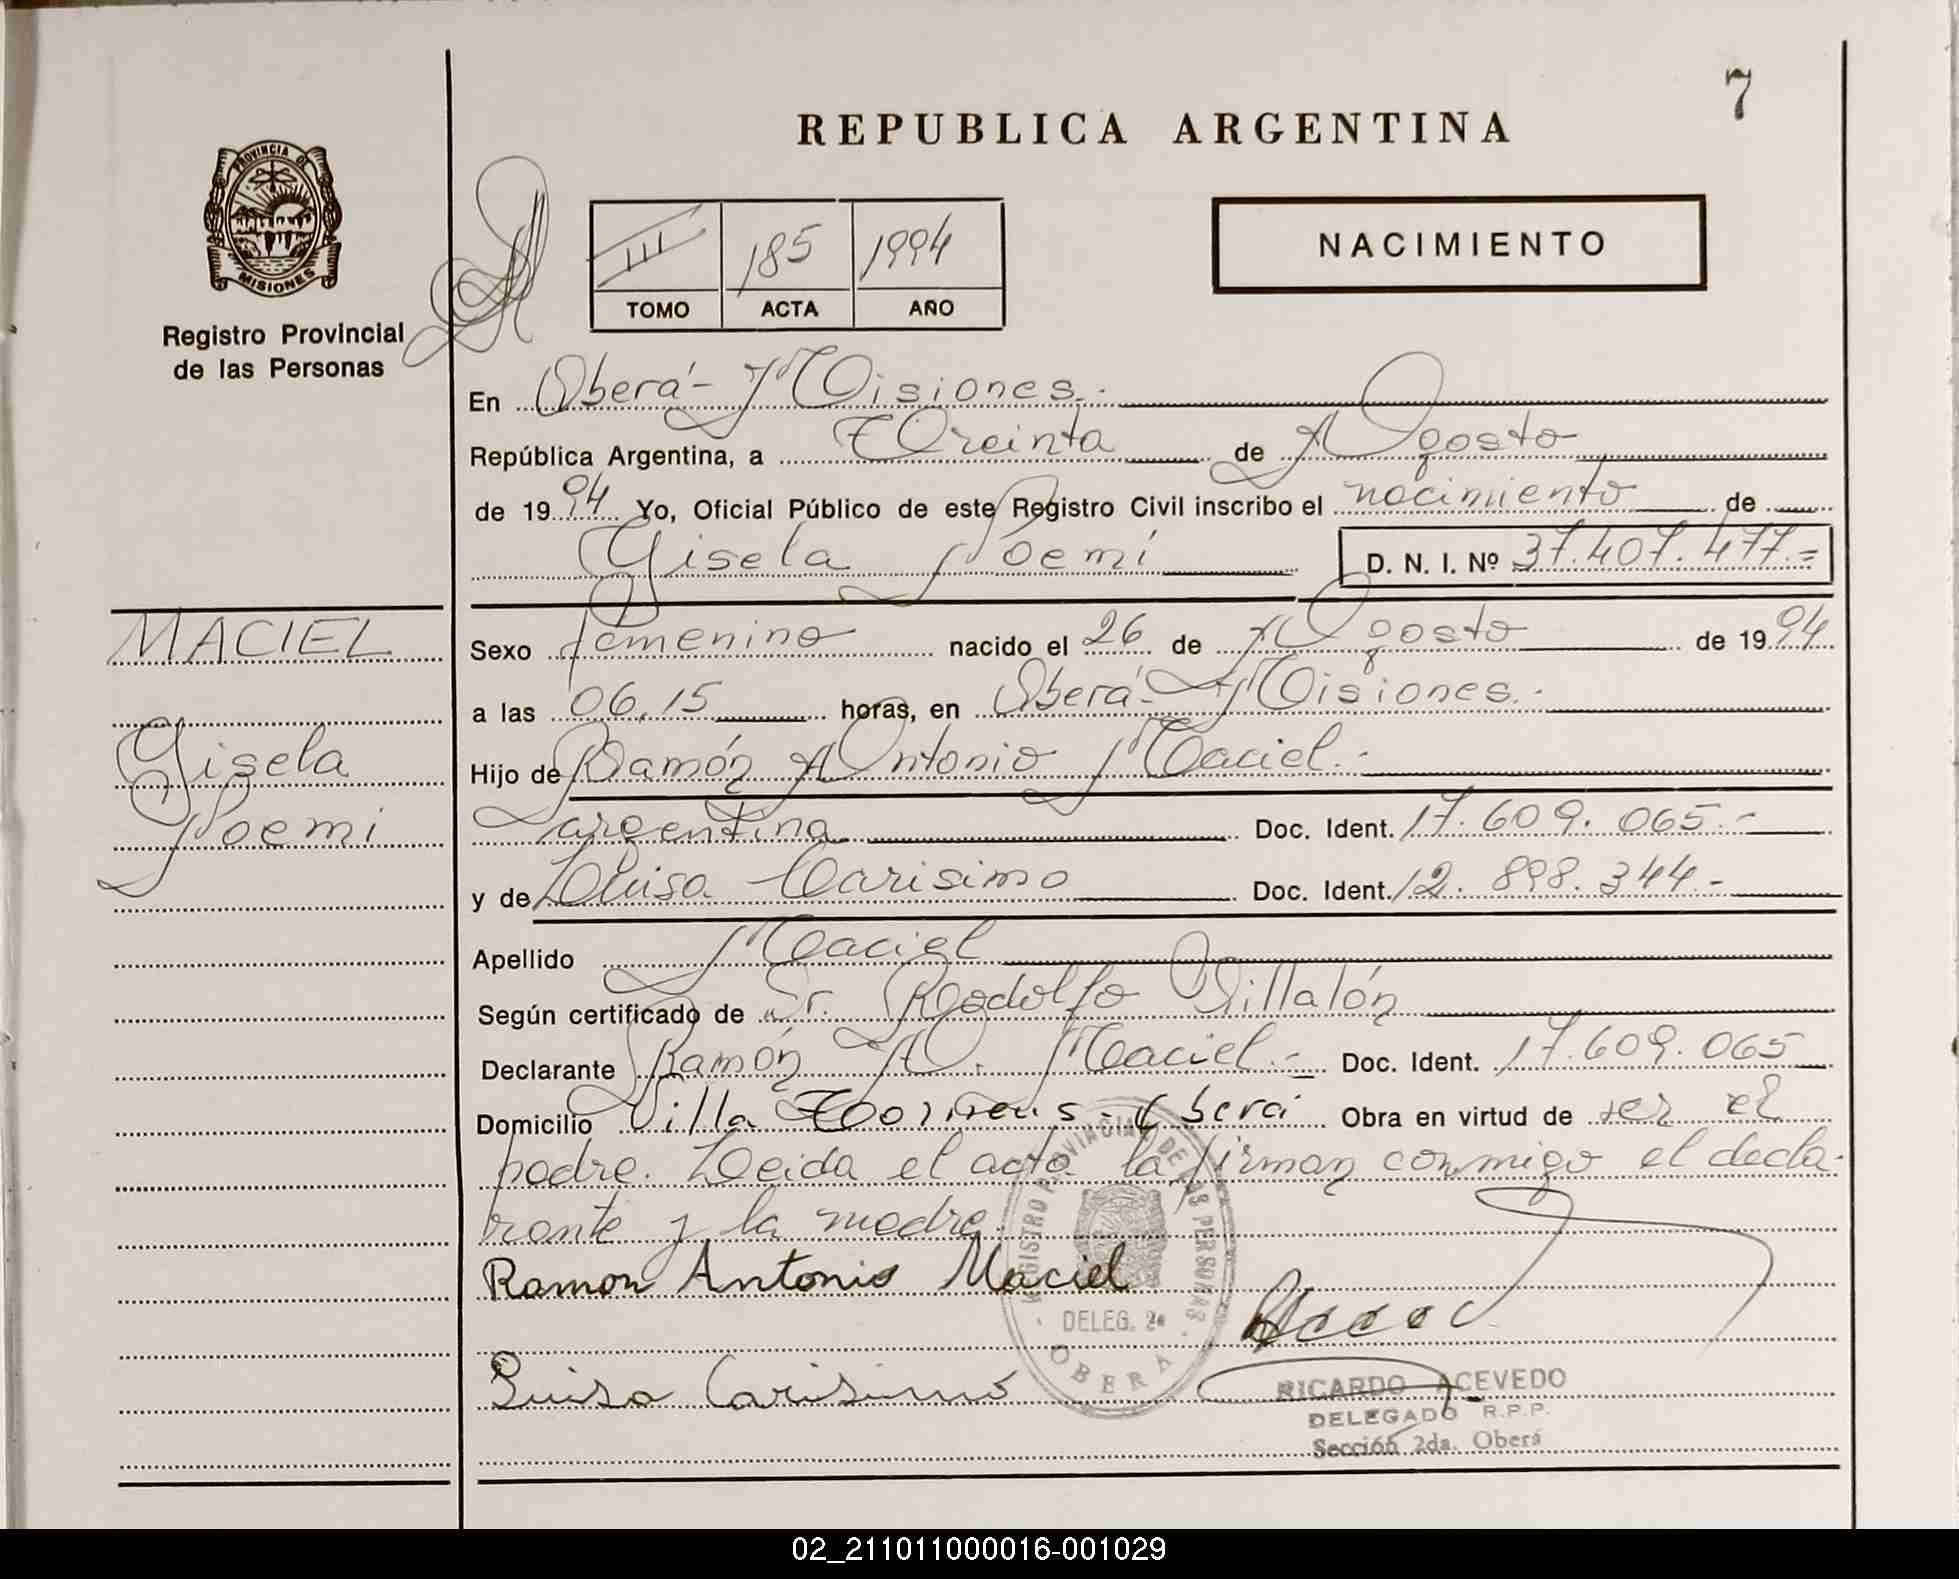 7
REPUBLICA ARGENTINA
PROVINCIA DE
MISIONES
Registro Provincial
de las Personas
III 185 1994
TOMO ACTA AÑO
NACIMIENTO
En Oberá - Misiones.
República Argentina, a Treinta de Agosto
de 1994 Yo, Oficial Público de este Registro Civil inscribo el nacimiento de
Gisela Noemí D. N. I. Nº 37.407.477.=
MACIEL
Gisela
Noemi
Sexo femenino nacido el 26 de Agosto de 1994
a las 06,15 horas, en Oberá - Misiones.
Hijo de Ramón Antonio Maciel.-
argentina Doc. Ident. 17.609.065.-
y de Luisa Carisimo Doc. Ident. 12.898.344.-
Apellido Maciel
Según certificado de Dr. Rodolfo Villalón
Declarante Ramón A. Maciel.- Doc. Ident. 17.609.065
Domicilio Villa - Oberá Obra en virtud de ser el
padre. Leida el acta la firman conmigo el decla-
rante y la madre.
Ramon Antonio Maciel
Luisa Carisimo
REGISTRO PROVINCIAL DE LAS PERSONAS
DELEG. 2a
OBERA
RICARDO ACEVEDO
DELEGADO R.P.P.
Sección 2da. Oberá
02_211011000016-001029